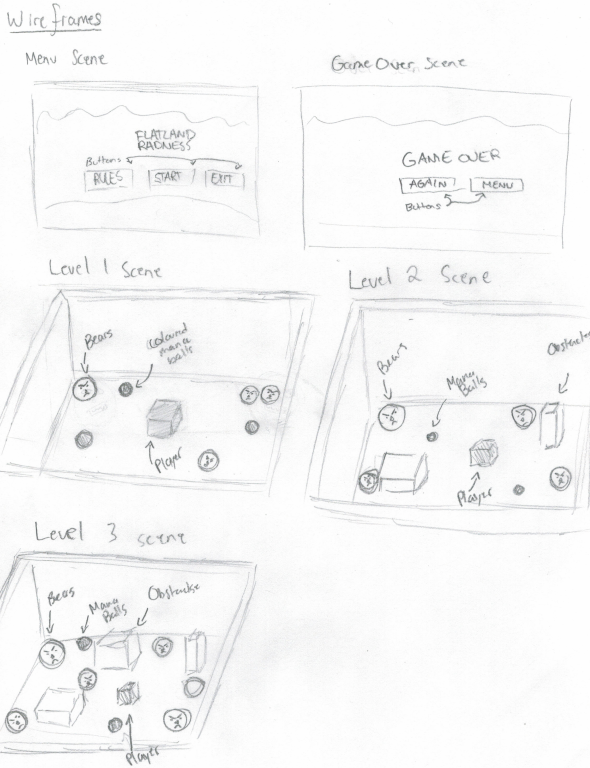 Wireframes
Menu Scene
FLATLAND
RADNESS
Buttons
RULES
START
EXIT
Game Over Scene
GAME OVER
AGAIN
MENU
Buttons
Level 1 Scene
Bears
coloured
mana
balls
Player
Level 2 Scene
Bears
Mana
Balls
Obstacles
Player
Level 3 scene
Bears
Mana
Balls
Obstacle
Player